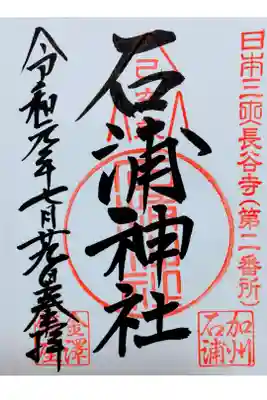 日本三所長谷寺(第二番所)
加州
石浦
石浦神社
金澤
令和元年七月廿九日奉拝